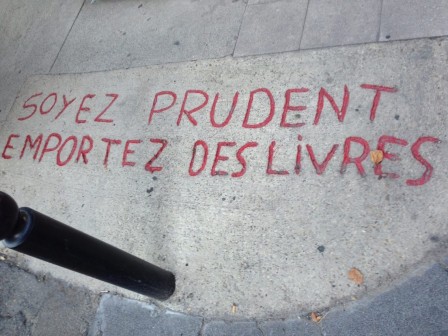 SOYEZ PRUDENT
EMPORTEZ DES LiVRES